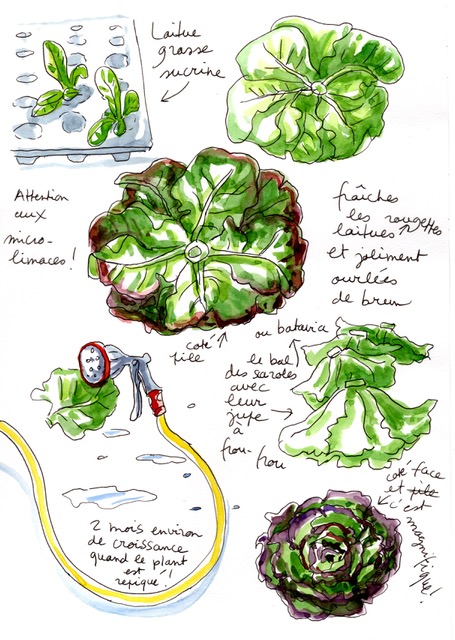 Laitue
grasse
sucrine
Attention
aux
micro-
limaces!
fraîches
les rougettes
laitues
et joliment
ourlées
de brun
coté
pile
ou batavia
le bal
des laitues
avec
leur
jupe
à
frou-
frou
coté face
et pile
c'est
magnifique!
2 mois environ
de croissance
quand le plant
est
repiqué!